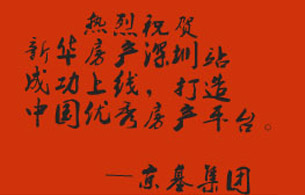 热烈祝贺
新华房产深圳站
成功上线，打造
中国优秀房产平台。
—京基集团